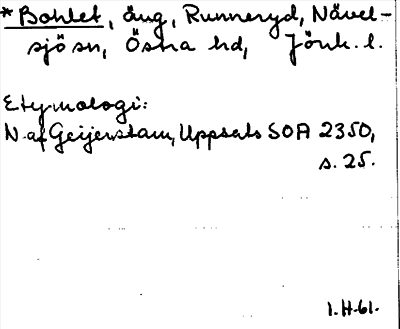 * Bohlet, äng, Runneryd, Nävel-
sjö sn, Östra hd, Jönk. l.
Etymologi:
N. af Geijerstam, Uppsats SOA 2350,
s. 25.
1.H-61.